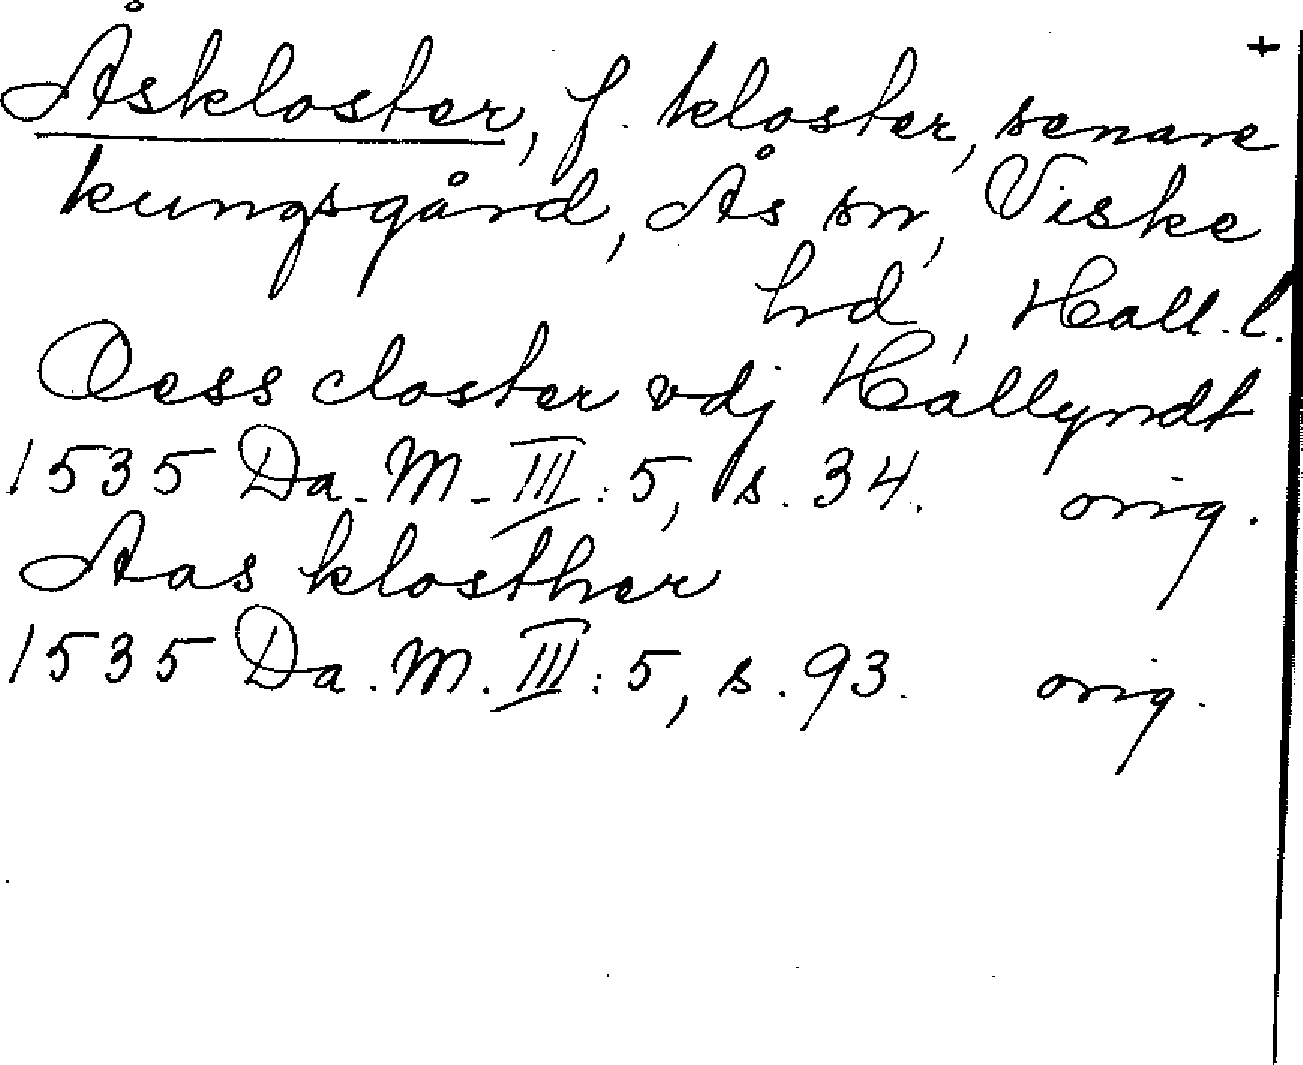 +
Åskloster, f. kloster, senare
kungsgård, Ås sn, Viske
hd, Hall. l.
Oess closter vdj Hallyndt
1535 Da. M. III: 5, s. 34. orig.
Aas klosther
1535 Da. M. III: 5, s. 93. orig.